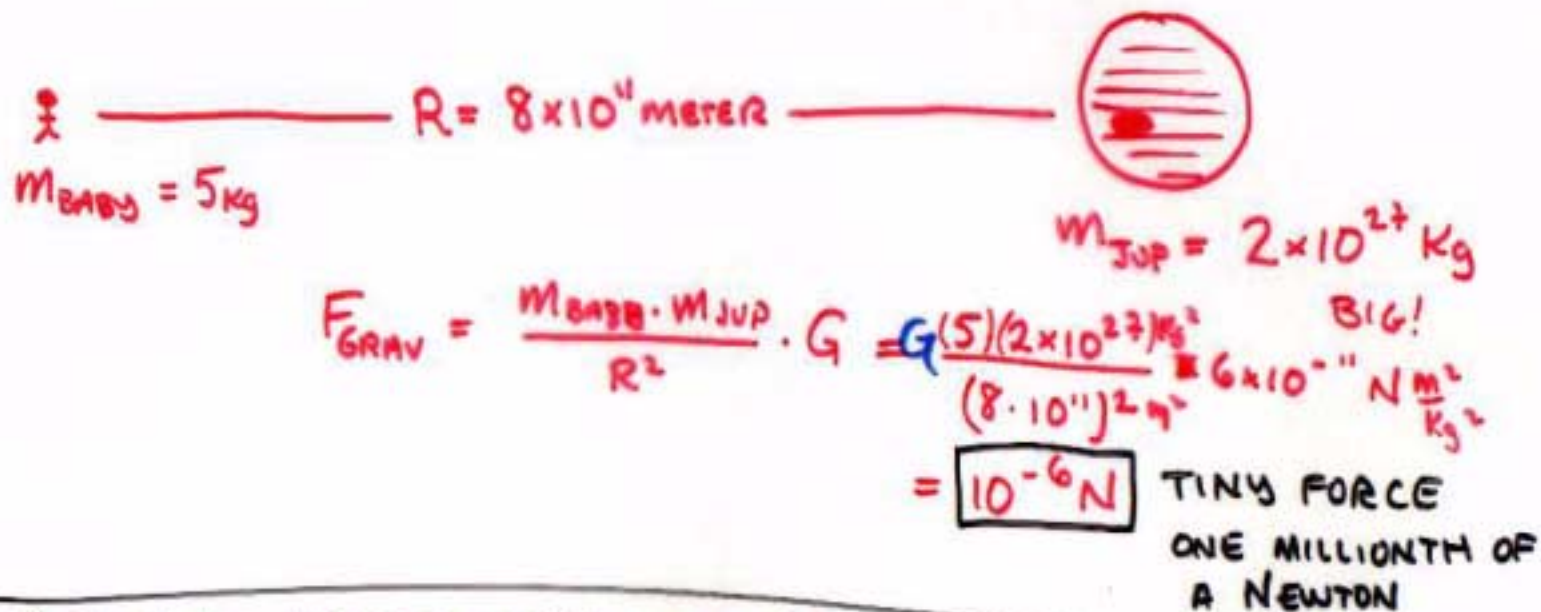 R = 8×10¹¹ METER
m_BABY = 5 Kg
m_JUP = 2×10²⁷ Kg
BIG!
F_GRAV = m_BABB · m_JUP / R² · G = G (5)(2×10²⁷) Kg² / (8·10¹¹)² m² · 6×10⁻¹¹ N m²/Kg²
= 10⁻⁶ N TINY FORCE
ONE MILLIONTH OF
A NEWTON